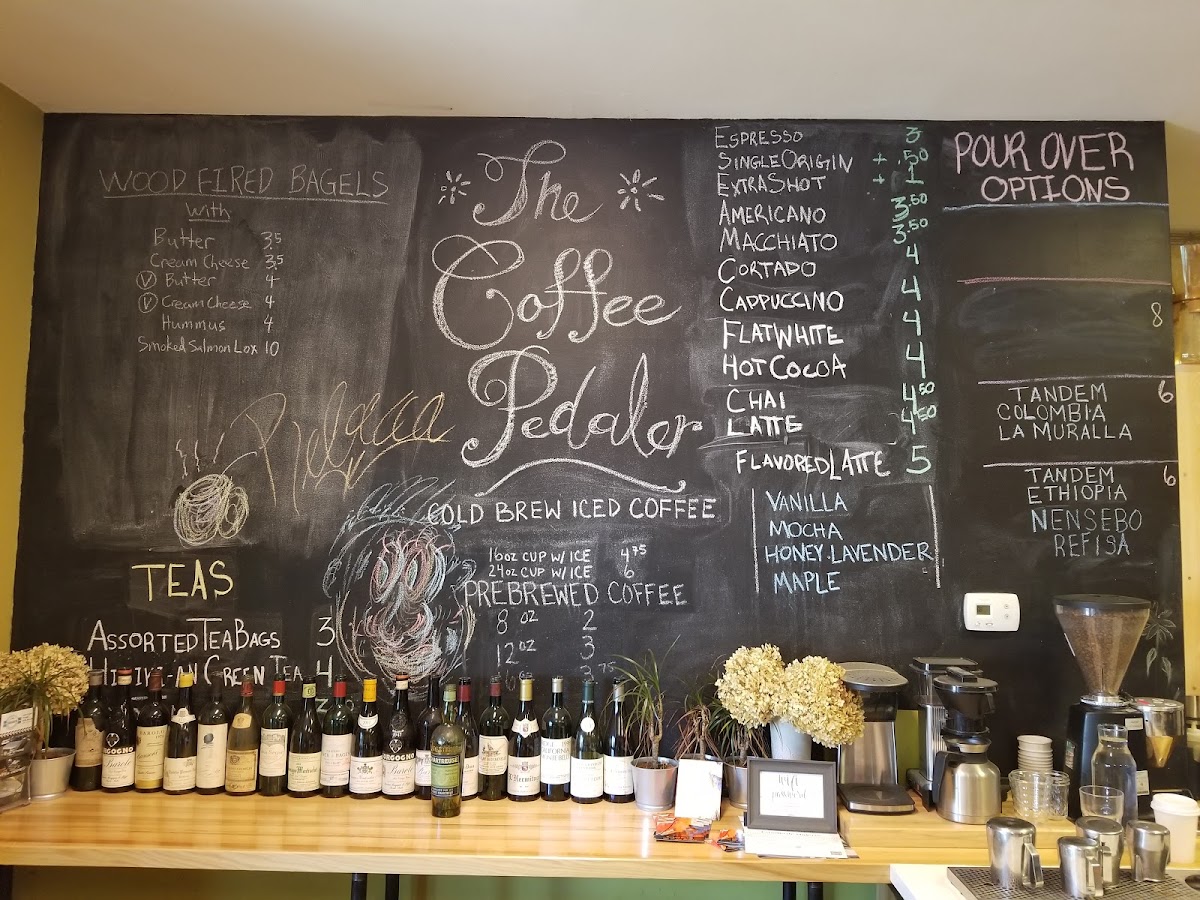 WOOD FIRED BAGELS
With
Butter 3.5
Cream Cheese 3.5
V Butter 4
V Cream Cheese 4
Hummus 4
Smoked Salmon Lox 10
Rebecca
TEAS
ASSORTED TEA BAGS 3
GREEN TEA 4
The
Coffee
Pedaler
COLD BREW ICED COFFEE
16oz CUP W/ ICE 4.75
24oz CUP W/ ICE 6
PREBREWED COFFEE
8 oz 2
12 oz 3
ESPRESSO 3
SINGLE ORIGIN + .50
EXTRA SHOT + 1
AMERICANO 3.50
MACCHIATO 3.50
CORTADO 4
CAPPUCCINO 4
FLAT WHITE 4
HOT COCOA 4
CHAI 4.50
LATTE 4.50
FLAVORED LATTE 5
VANILLA
MOCHA
HONEY.LAVENDER
MAPLE
POUR OVER
OPTIONS
8
TANDEM 6
COLOMBIA
LA MURALLA
TANDEM 6
ETHIOPIA
NENSEBO
REFISA
wifi
password